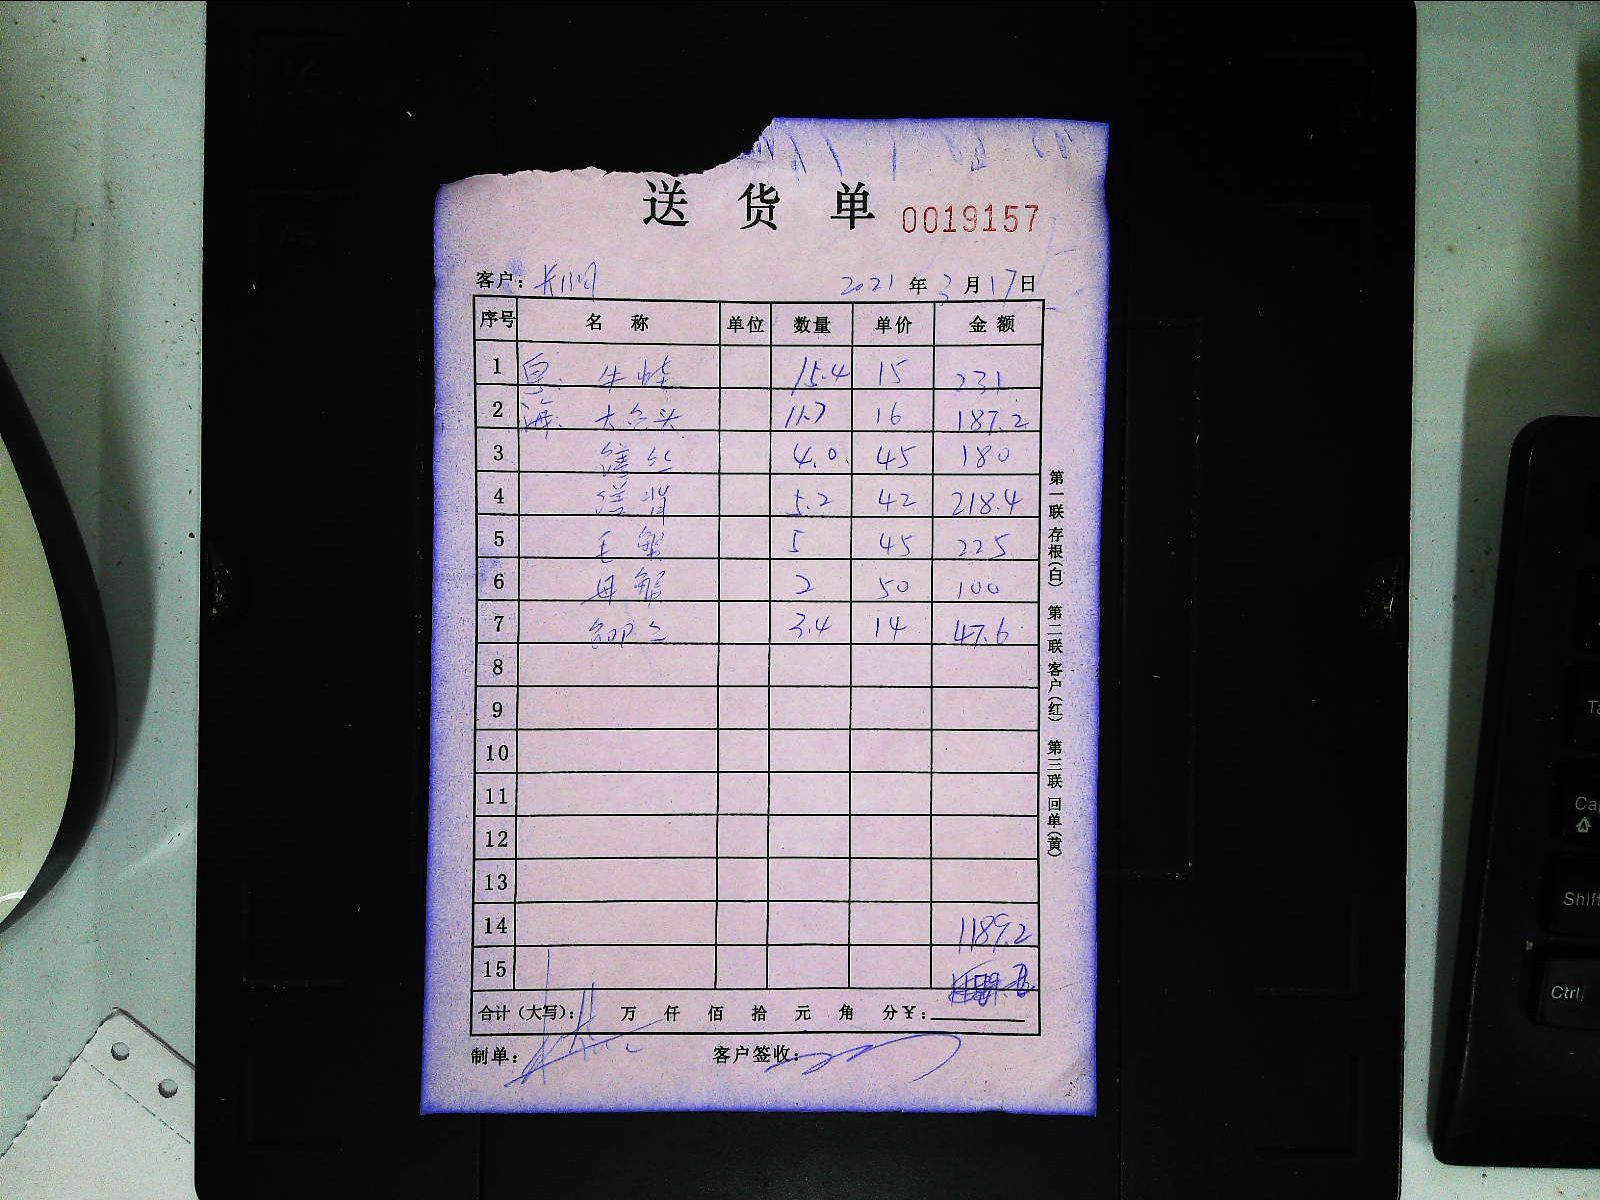 送 货 单 0019157
客户: 2021 年 3 月 17 日
序号 名 称 单位 数量 单价 金 额
1 牛蛙 15.4 15 231
2 海: 大仓头 11.7 16 187.2
3 鳝丝 4.0 45 180
4 鳝背 5.2 42 218.4
5 毛蟹 5 45 225
6 母蟹 2 50 100
7 3.4 14 47.6
8
9
10
11
12
13
14 1189.2
15
合计(大写): 万 仟 佰 拾 元 角 分¥:
制单: 客户签收:
第一联 存根(白) 第二联 客户(红) 第三联 回单(黄)
Ta
Ca
Shift
Ctrl